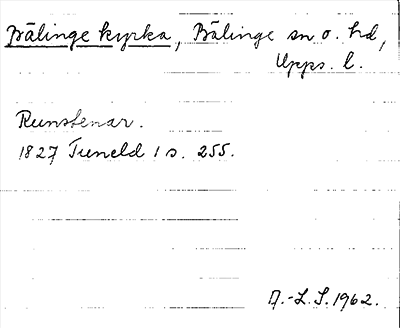 Bälinge kyrka, Bälinge sn o. hd,
Upps. l.
Runstenar.
1827 Tuneld 1 s. 255.
A.-L. S. 1962.